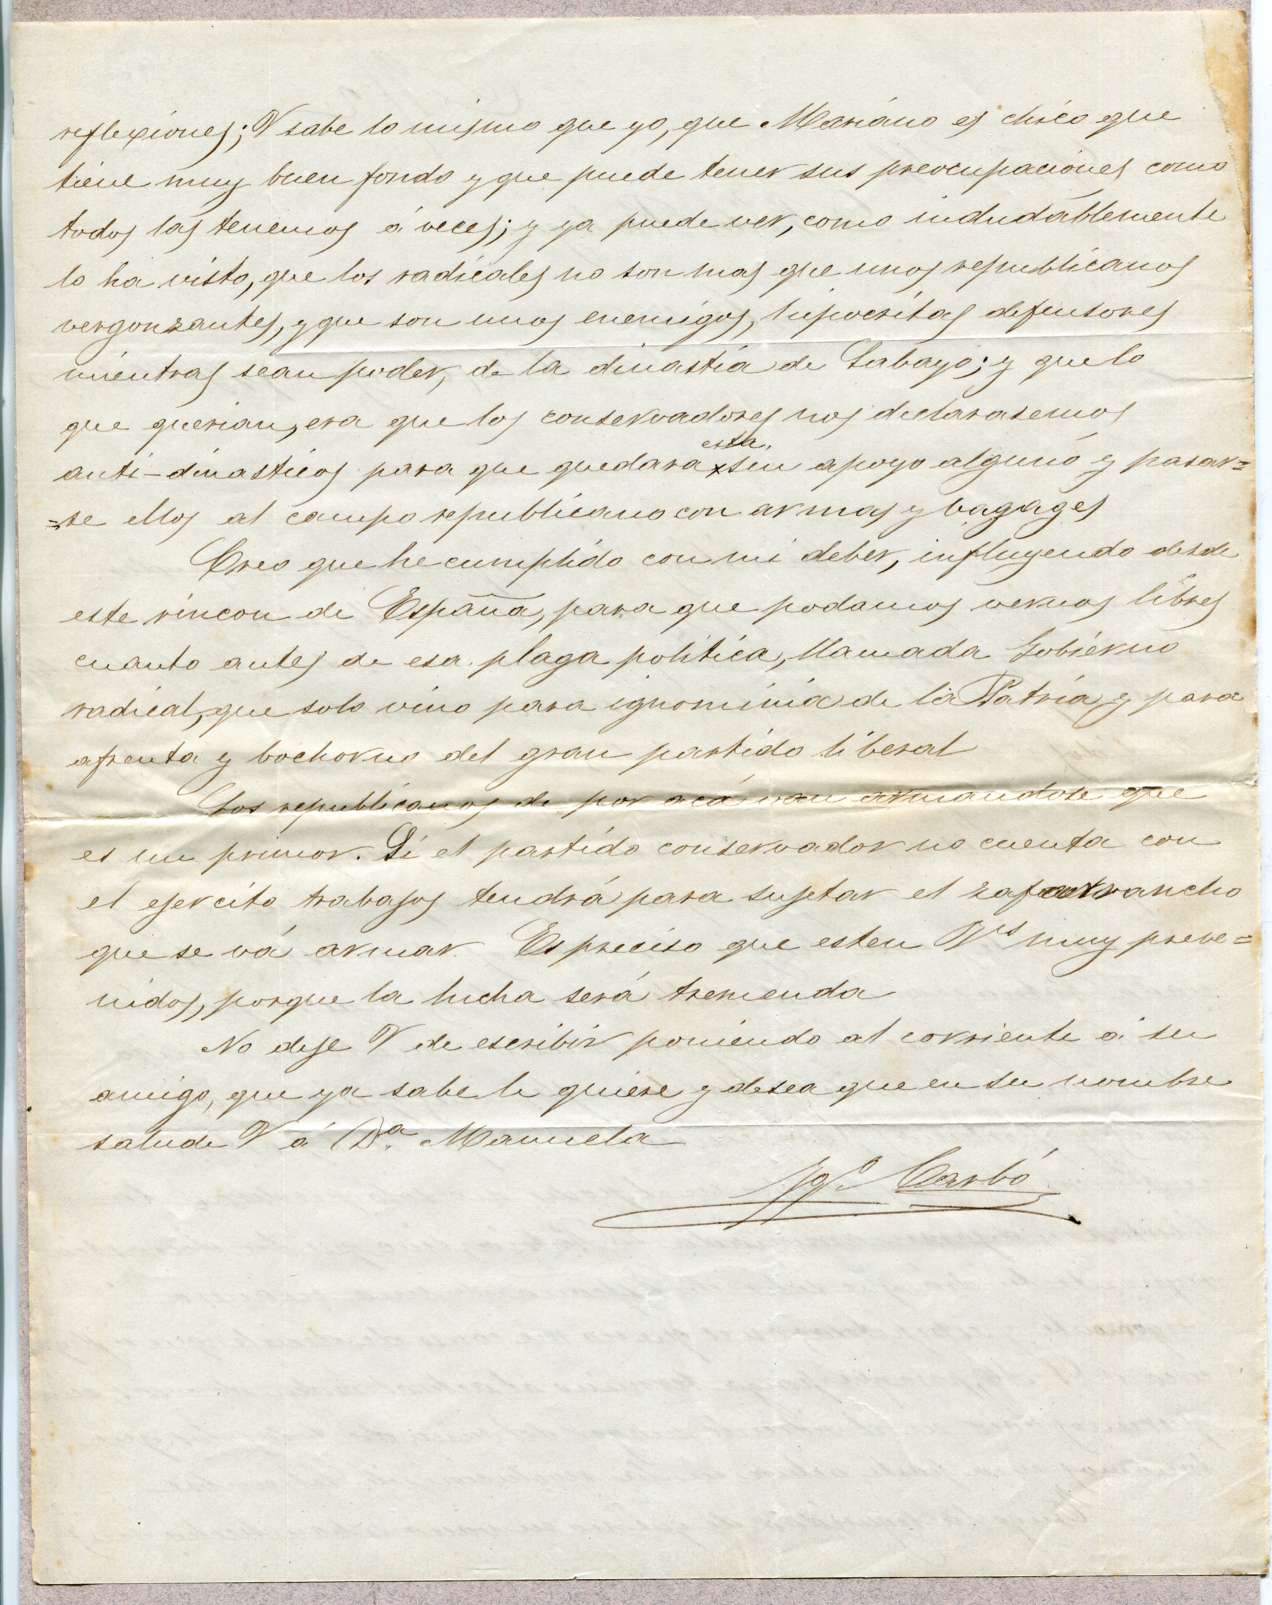 reflexiones; V sabe lo mismo que yo, que Mariano es chico que
tiene muy buen fondo y que puede tener sus preocupaciones como
todos las tenemos á veces; y ya puede ver, como indudablemente
lo ha visto, que los radicales no son mas que unos republicanos
vergonzantes, y que son unos enemigos, hipocritas defensores
mientras sean poder, de la dinastia de Sabayo; y que lo
que querian, era que los conservadores nos declarasemos
anti-dinasticos para que quedara esta sin apoyo alguno y pasar=
=se ellos al campo republicano con armas y bagages
Creo que he cumplido con mi deber, influyendo desde
este rincon de España, para que podamos vernos libres
cuanto antes de esa plaga politica, llamada Gobierno
radical, que solo vino para ignominia de la Patria y para
afrenta y bochorno del gran partido liberal
Los republicanos de por acá van armandose que
es un primor. Si el partido conservador no cuenta con
el ejercito trabajos tendrá para sujetar el zafarrancho
que se vá armar. Es preciso que esten Vs muy preve=
nidos, porque la lucha será tremenda
No deje V de escribir poniendo al corriente á su
amigo, que ya sabe le quiere y desea que en su nombre
salude V á Da. Manuela
Igo. Carbó